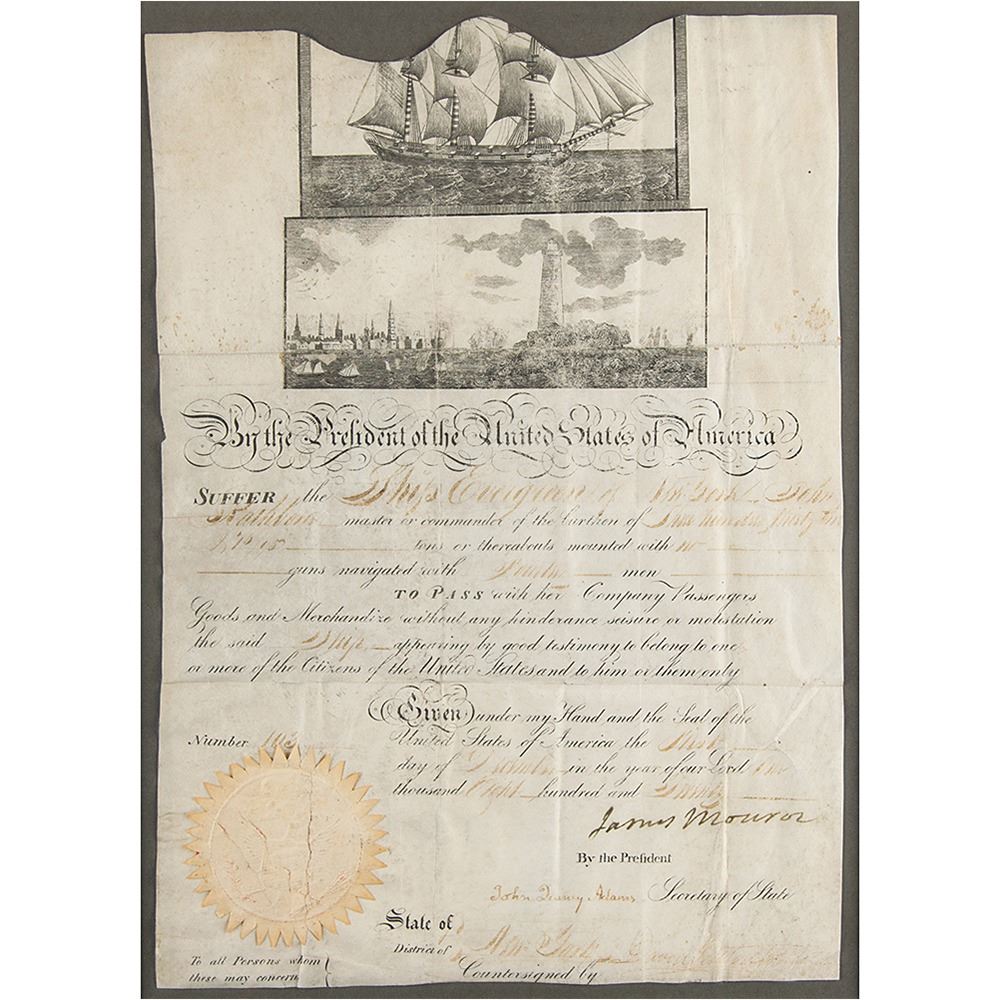 By the President of the United States of America
SUFFER the Ship Evergreen of New York John
master or commander of the burthen of hundred
tons or thereabouts mounted with no
guns navigated with men
TO PASS with her Company Passengers
Goods and Merchandize without any hinderance seisure or molestation
the said Ship appearing by good testimony to belong to one
or more of the Citizens of the United States and to him or them only
Given under my Hand and the Seal of the
Number United States of America the
day of December in the year of our Lord One
thousand Eight hundred and Twenty
James Monroe
By the President
John Quincy Adams Secretary of State
State of
District of New York
To all Persons whom
these may concern
Countersigned by